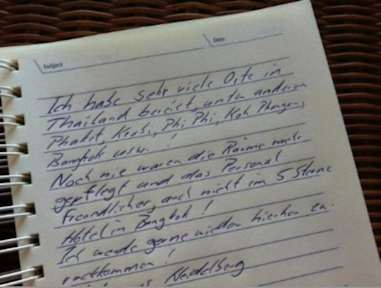 Subject
Date
Ich habe sehr viele Orte in
Thailand bereist, unter anderem
Phuket, Krabi, Phi Phi, Koh Phangan,
Bangkok usw. !
Noch nie waren die Räume mehr
gepflegt und das Personal
freundlicher, auch nicht im 5 Sterne
Hotel in Bangkok !
Ich werde gerne wieder hierher
zurückkommen !